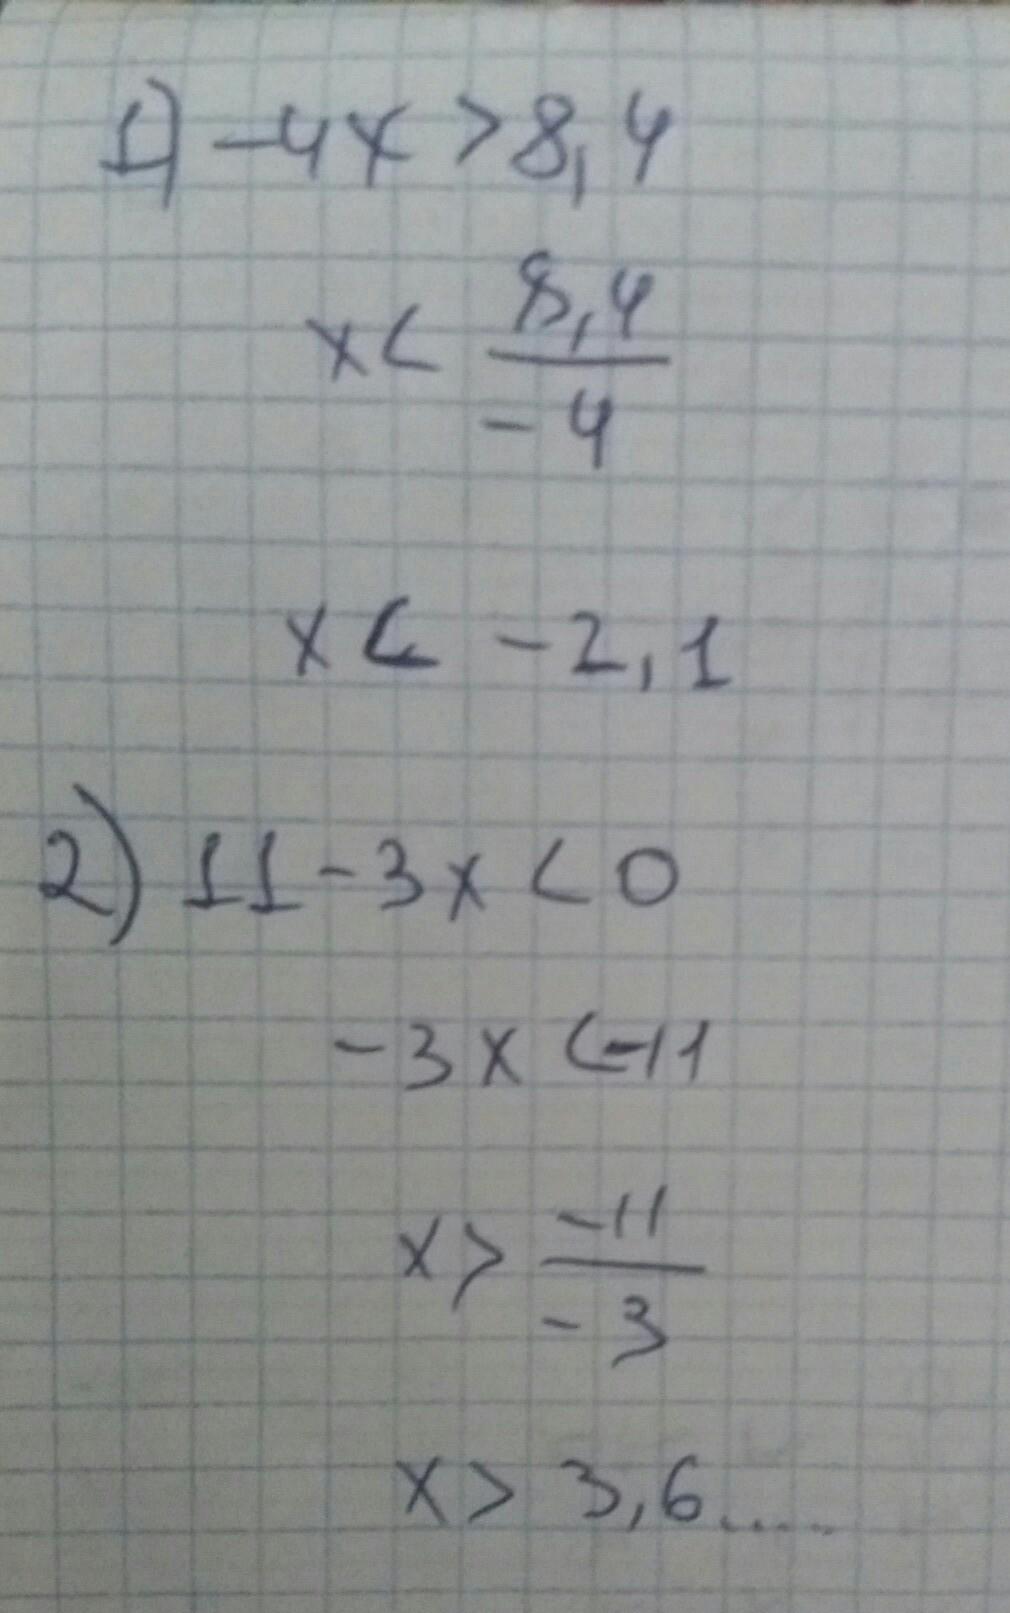 1) -4x > 8,4
x < 8,4 / -4
x < -2,1
2) 11 - 3x < 0
-3x < -11
x > -11 / -3
x > 3,6.....